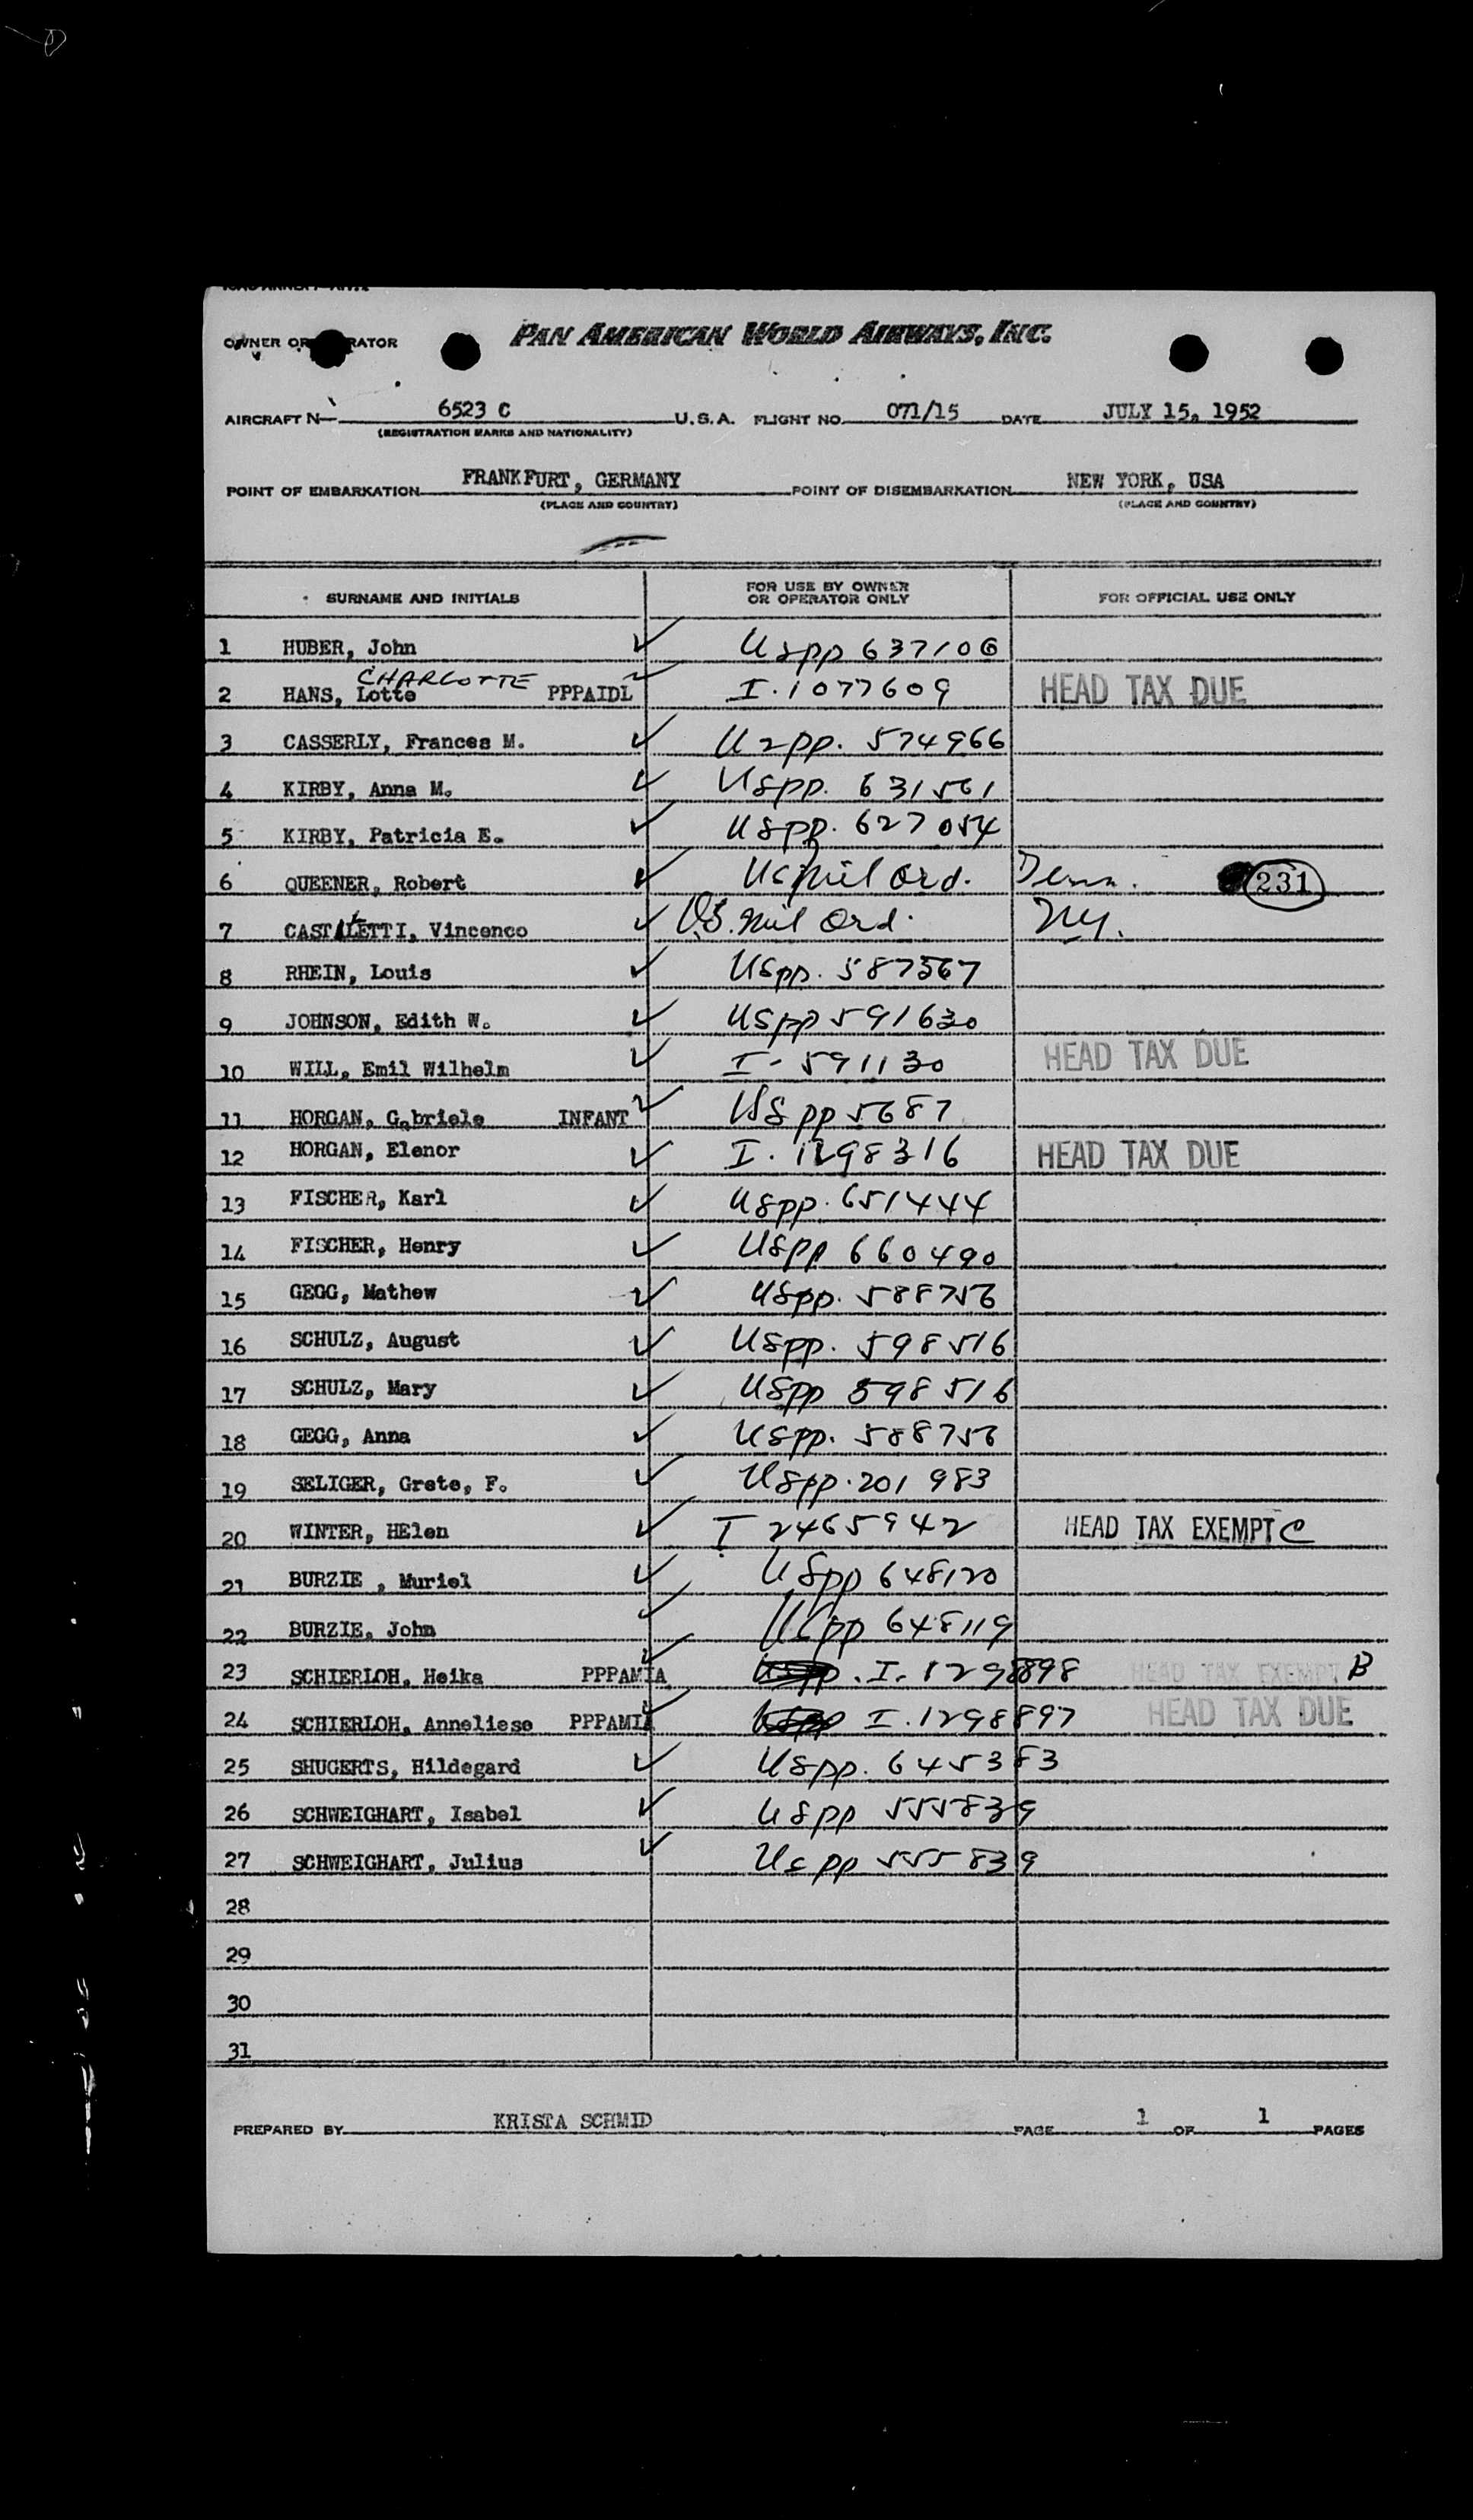 PAN AMERICAN WORLD AIRWAYS, INC.
OWNER OR OPERATOR
AIRCRAFT N 6523 C U.S.A. FLIGHT NO. 071/15 DATE JULY 15, 1952
(REGISTRATION MARKS AND NATIONALITY)
POINT OF EMBARKATION FRANKFURT, GERMANY POINT OF DISEMBARKATION NEW YORK, USA
(PLACE AND COUNTRY) (PLACE AND COUNTRY)
SURNAME AND INITIALS FOR USE BY OWNER OR OPERATOR ONLY FOR OFFICIAL USE ONLY
1 HUBER, John USpp 637106
CHARLOTTE
2 HANS, Lotte PPPAIDL I. 1077609 HEAD TAX DUE
3 CASSERLY, Frances M. USpp. 574966
4 KIRBY, Anna M. USpp. 631561
5 KIRBY, Patricia E. USpp. 627054
6 QUEENER, Robert US Mil Ord. Tenn. 231
7 CASTALETTI, Vincenco US. Mil Ord. NY.
8 RHEIN, Louis USpp. 587567
9 JOHNSON, Edith W. USpp 591630
10 WILL, Emil Wilhelm I - 591130 HEAD TAX DUE
11 HORGAN, Gabriele INFANT USpp 5687
12 HORGAN, Elenor I. 1298316 HEAD TAX DUE
13 FISCHER, Karl USpp. 651444
14 FISCHER, Henry USpp 660490
15 GEGG, Mathew USpp. 588756
16 SCHULZ, August USpp. 598516
17 SCHULZ, Mary USpp 598516
18 GEGG, Anna USpp. 588756
19 SELIGER, Grete, F. USpp. 201983
20 WINTER, HElen I 2465942 HEAD TAX EXEMPT C
21 BURZIE , Muriel USpp 648120
22 BURZIE, John USpp 648119
23 SCHIERLOH, Heika PPPAMIA I. 1298898 HEAD TAX EXEMPT B
24 SCHIERLOH, Anneliese PPPAMIA I. 1298897 HEAD TAX DUE
25 SHUGERTS, Hildegard USpp. 645383
26 SCHWEIGHART, Isabel USpp 555839
27 SCHWEIGHART, Julius USpp 555839
28
29
30
31
PREPARED BY KRISTA SCHMID PAGE 1 OF 1 PAGES